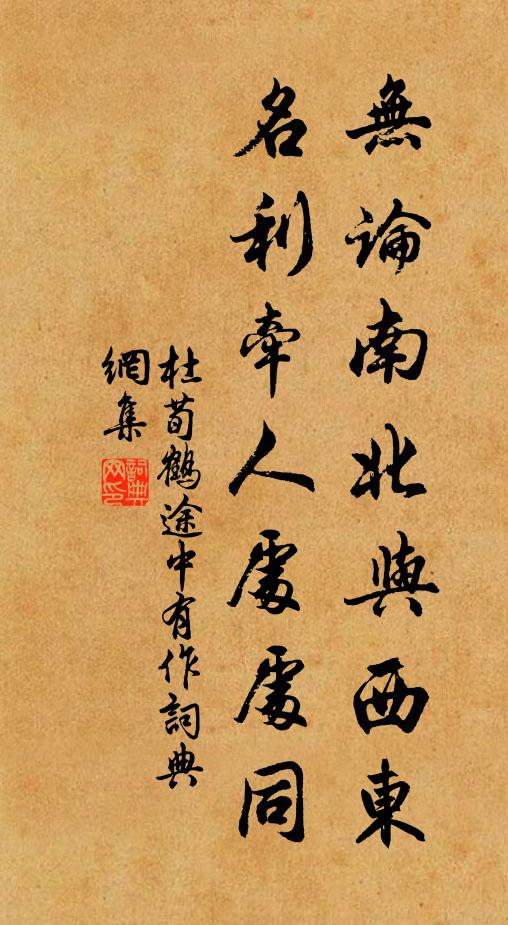 無論南北與西東
名利牽人處處同
杜荀鶴途中有作詞典
網集
詞典網印